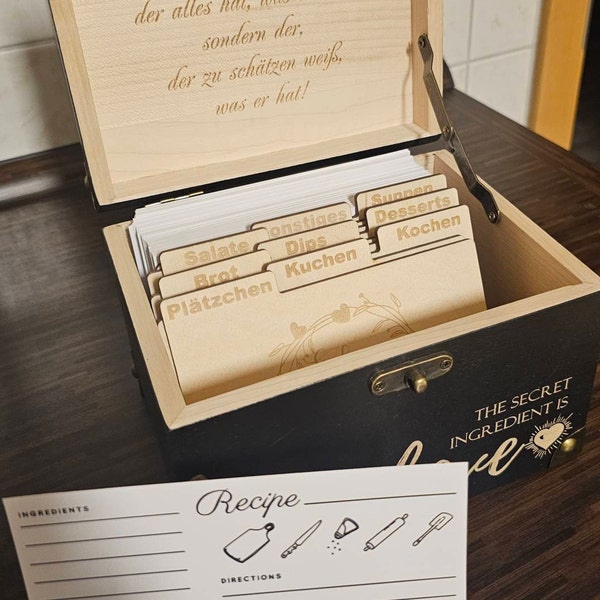 der alles hat, was
sondern der,
der zu schätzen weiß,
was er hat!
Salate
onstiges
Suppen
Brot
Dips
Desserts
Plätzchen
Kuchen
Kochen
THE SECRET
INGREDIENT IS
love
INGREDIENTS
Recipe
DIRECTIONS